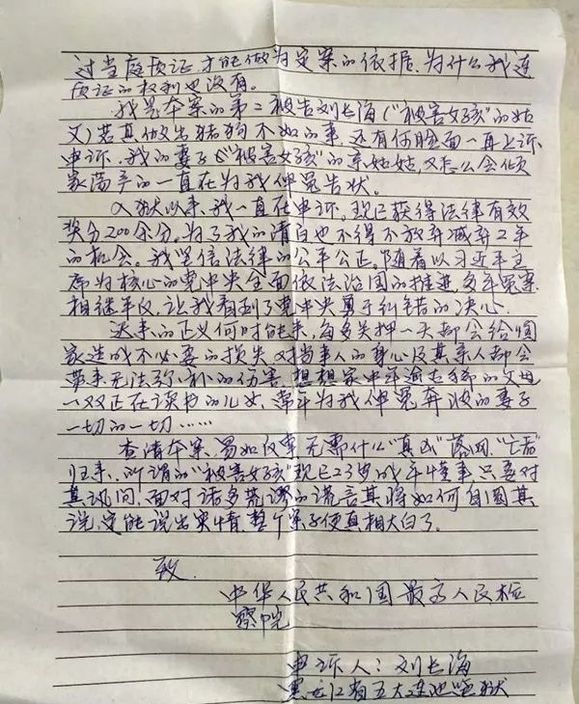 过当庭质证，才能做为定案的依据，为什么我连
质证的权利也没有。
我是本案的第二被告刘长海（“被害女孩”的姑
父）若真做出猪狗不如的事，还有何脸面一再上诉
申诉，我的妻子（“被害女孩”的亲姑姑，又怎么会倾
家荡产的一直在为我伸冤告状。
入狱以来，我一直在申诉，现已获得法律有效
奖分200余分，为了我的清白也不得不放弃减刑2年
的机会。我坚信法律的公平公正，随着以习近平主
席为核心的党中央全面依法治国的推进，多年冤案
相继平反，让我看到了党中央勇于纠错的决心。
迟来的正义何时能来，每多关押一天都会给国
家造成不必要的损失，对当事人的身心及其亲人都会
带来无法弥补的伤害，想想家中年逾七旬的父母
一双正在读书的儿女，常年为我伸冤奔波的妻子
一切的一切……
查清本案，易如反掌，无需什么“真凶”落网，“亡者”
归来，所谓的“被害女孩”现已23岁成年懂事，只要对
其讯问，面对诸多荒谬的谎言其将如何自圆其
说，定能说出实情，整个案子便真相大白了。
致
中华人民共和国最高人民检
察院
申诉人：刘长海
黑龙江省五大连池监狱